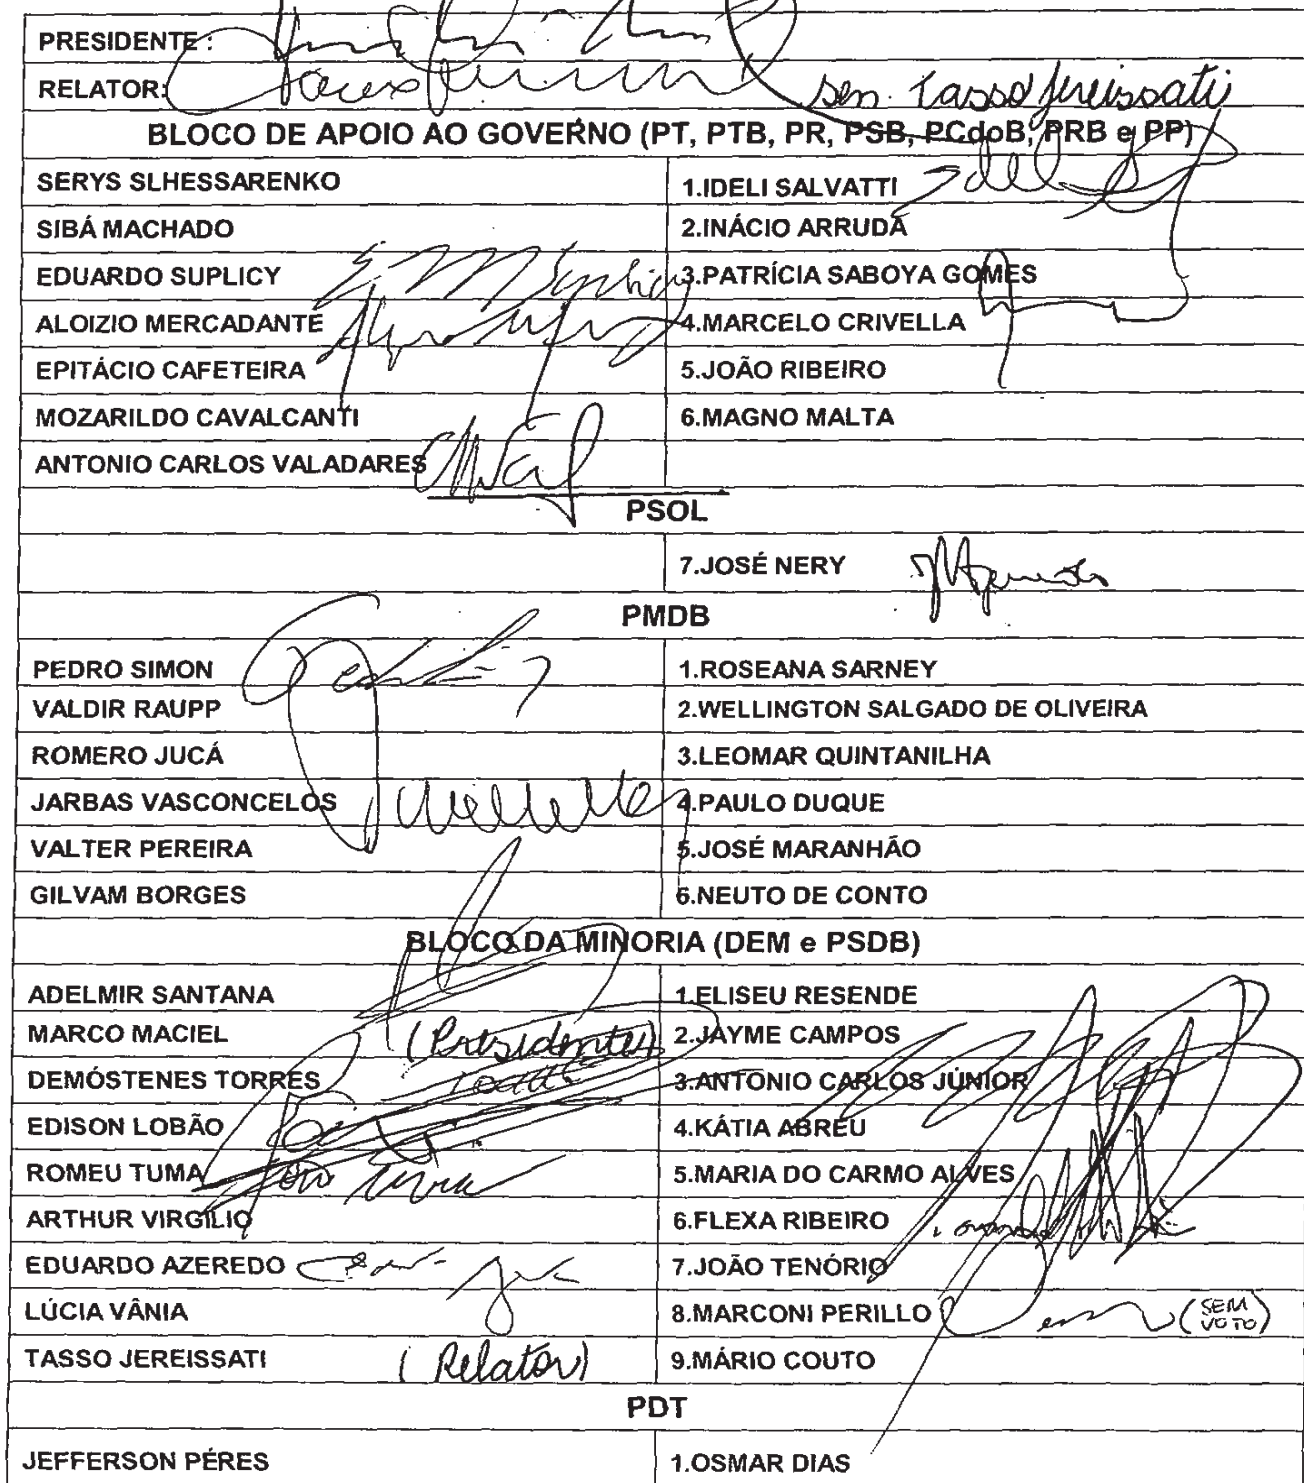 PRESIDENTE :
RELATOR: sen. Tasso Jereissati
BLOCO DE APOIO AO GOVERNO (PT, PTB, PR, PSB, PCdoB, PRB e PP)
SERYS SLHESSARENKO 1.IDELI SALVATTI
SIBÁ MACHADO 2.INÁCIO ARRUDA
EDUARDO SUPLICY 3.PATRÍCIA SABOYA GOMES
ALOIZIO MERCADANTE 4.MARCELO CRIVELLA
EPITÁCIO CAFETEIRA 5.JOÃO RIBEIRO
MOZARILDO CAVALCANTI 6.MAGNO MALTA
ANTONIO CARLOS VALADARES
PSOL
7.JOSÉ NERY
PMDB
PEDRO SIMON 1.ROSEANA SARNEY
VALDIR RAUPP 2.WELLINGTON SALGADO DE OLIVEIRA
ROMERO JUCÁ 3.LEOMAR QUINTANILHA
JARBAS VASCONCELOS 4.PAULO DUQUE
VALTER PEREIRA 5.JOSÉ MARANHÃO
GILVAM BORGES 6.NEUTO DE CONTO
BLOCO DA MINORIA (DEM e PSDB)
ADELMIR SANTANA 1.ELISEU RESENDE
MARCO MACIEL (Presidente) 2.JAYME CAMPOS
DEMÓSTENES TORRES 3.ANTONIO CARLOS JÚNIOR
EDISON LOBÃO 4.KÁTIA ABREU
ROMEU TUMA 5.MARIA DO CARMO ALVES
ARTHUR VIRGÍLIO 6.FLEXA RIBEIRO
EDUARDO AZEREDO 7.JOÃO TENÓRIO
LÚCIA VÂNIA 8.MARCONI PERILLO (SEM VOTO)
TASSO JEREISSATI (Relator) 9.MÁRIO COUTO
PDT
JEFFERSON PÉRES 1.OSMAR DIAS